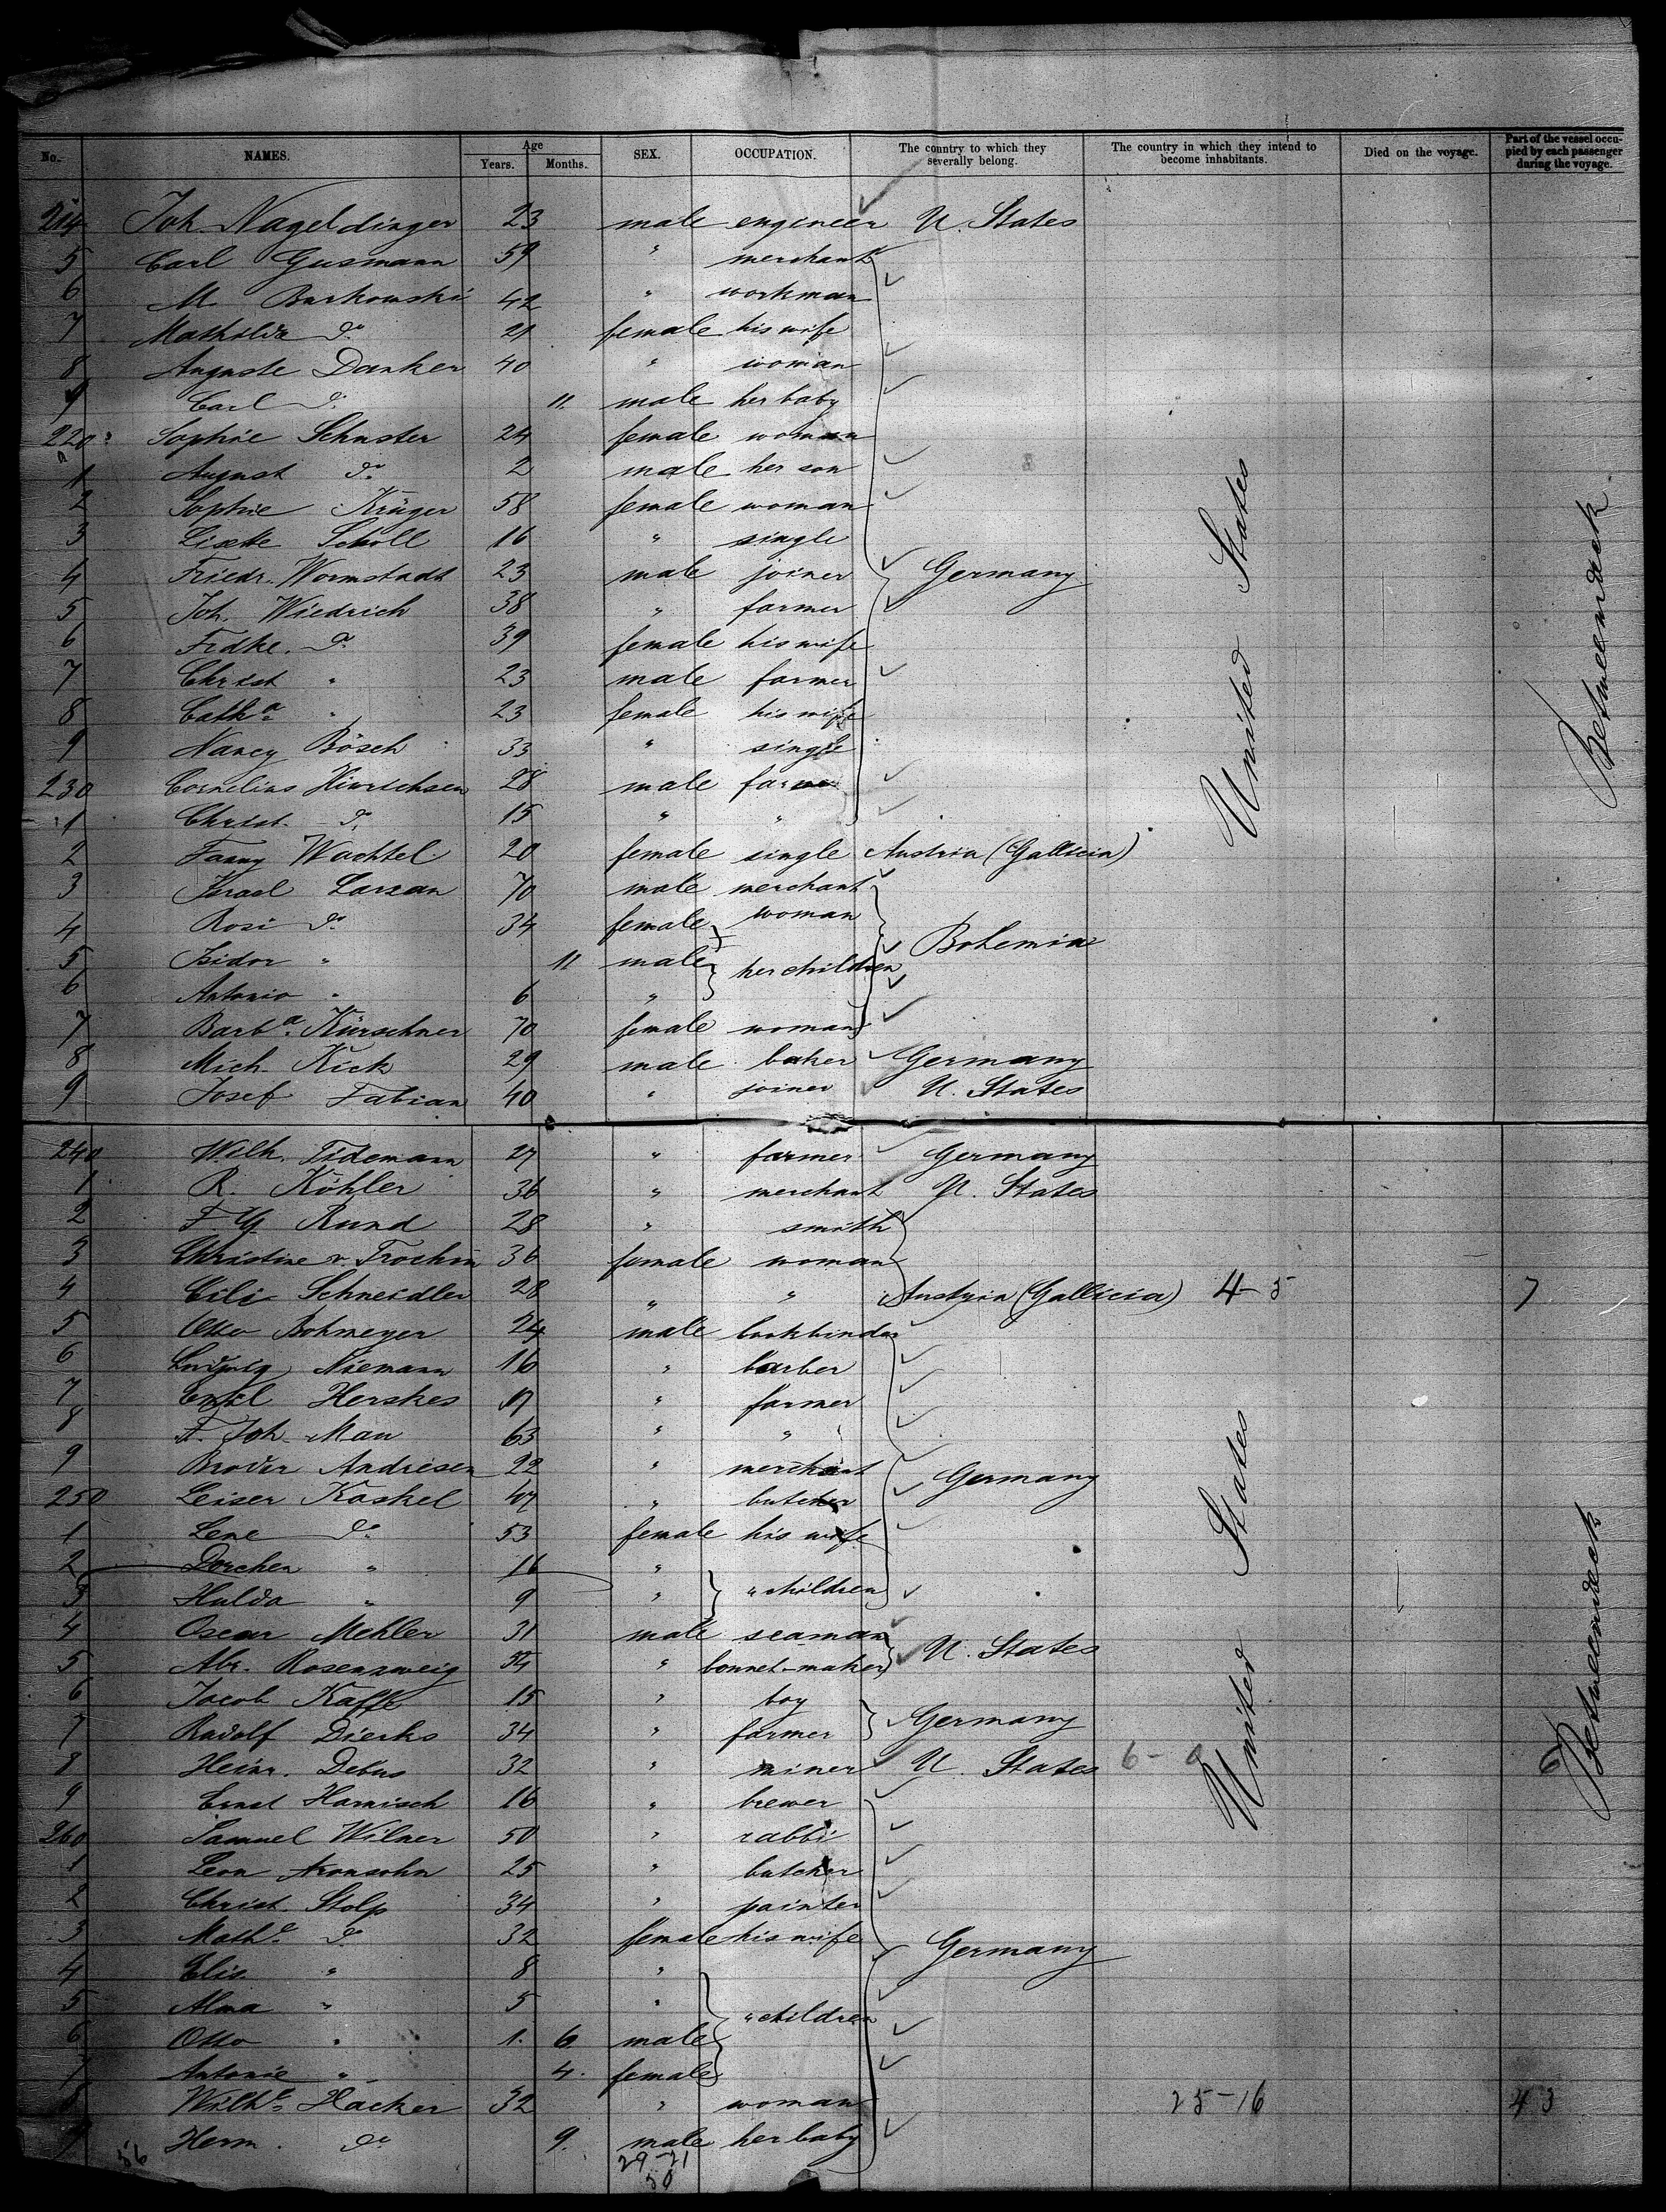 No. NAMES. Age Years. Months. SEX. OCCUPATION. The country to which they severally belong. The country in which they intend to become inhabitants. Died on the voyage. Part of the vessel occupied by each passenger during the voyage.
214 Joh. Nageldinger 23 male engineer U. States
5 Carl Gusmann 59 " merchant
6 M Burkowski 42 " workman
7 Mathilde do 21 female his wife
8 Auguste Danker 40 " woman
9 Carl do 11 male her baby
220 Sophie Schuster 24 female woman
1 August do 2 male her son
2 Sophie Krüger 58 female woman
3 Lisette Scholl 16 " single
4 Friedr. Wormstadt 23 male joiner Germany
5 Joh. Wiedrich 38 " farmer
6 Fridke. do 39 female his wife
7 Christ " 23 male farmer
8 Catha " 23 female his wife
9 Nancy Bösch 33 " single
230 Cornelius Hinrichsen 28 male farmer
1 Christ. do 15 " "
2 Fanny Wachtel 20 female single Austria (Gallicia)
3 Israel 70 male merchant
4 Rosi do 34 female woman Bohemia
5 Isidor " 11 male her children
6 Antonio " 6 "
7 Barba Kürschner 70 female woman
8 Mich. Kick 29 male baker Germany
9 Josef Fabian 40 " joiner U. States
United States
Betweendeck
240 Wilh. Tidemann 27 " farmer Germany
1 R. Köhler 36 " merchant U. States
2 F G Rund 28 " smith
3 Christine v. 36 female woman
4 Cili Schneidler 28 " " Austria (Gallicia) 4-5 7
5 Otto 24 male bookbinder
6 Ludwig Niemann 16 " barber
7 Emil Herskes 19 " farmer
8 F. Joh. Mau 63 " "
9 Broder Andresen 22 " merchant Germany
250 Leiser Kaskel 47 " butcher
1 Lene do 53 female his wife
2 Dorchen " 16 "
3 Hulda " 9 " " children
4 Oscar Mehler 31 male seaman
5 Abr. Rosenzweig 54 " bonnet-maker U. States
6 Jacob Kaffe 15 " boy
7 Rudolf Dierks 34 " farmer Germany
8 Heinr. Debus 32 " miner U. States 6-0 6
9 Ernst Harnisch 16 " brewer
260 Samuel Wilner 50 " rabbi
1 Leon Aronsohn 25 " butcher
2 Christ. Stolp 34 " painter
3 Mathe do 32 female his wife Germany
4 Elis. " 8 "
5 Alma " 5 " " children
6 Otto " 1. 6 male
7 Antonie " 4. female
8 Wilhe Hacker 32 " woman 25-16 43
9 Herm. do 9. male her baby
United States
Betweendeck
56 29-21
50